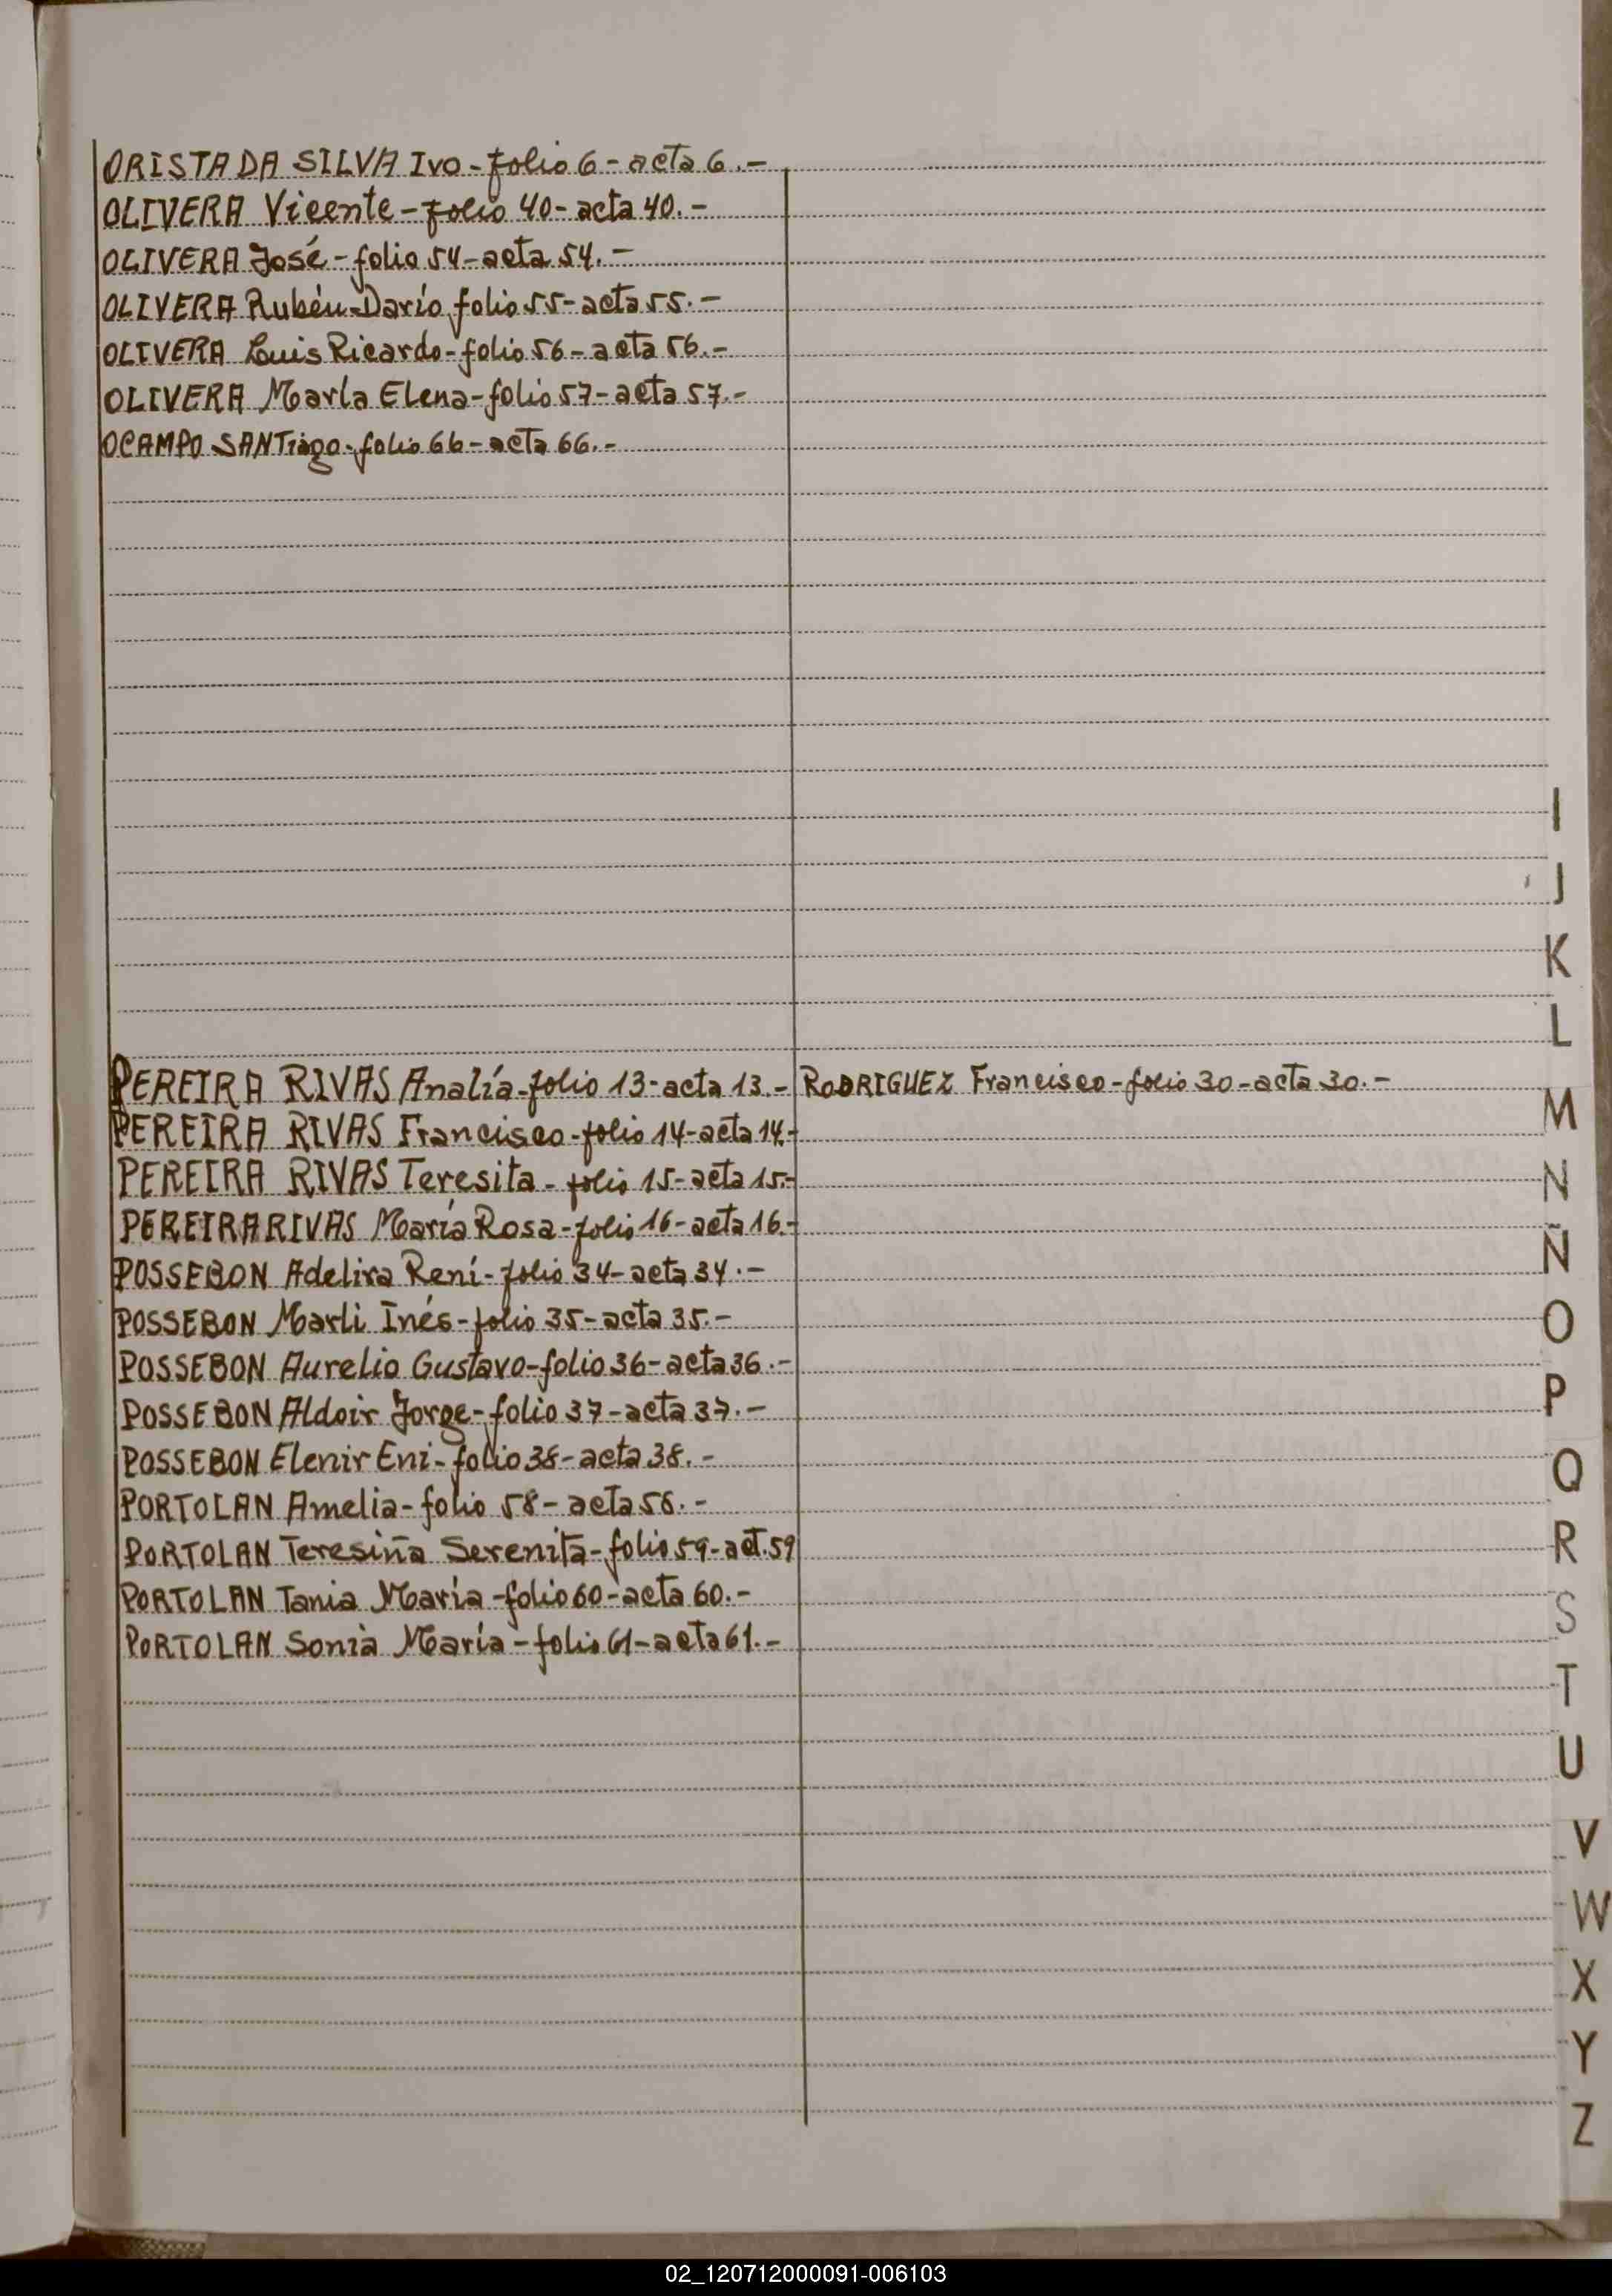 ORISTA DA SILVA Ivo - folio 6 - acta 6.-
OLIVERA Vicente - folio 40 - acta 40.-
OLIVERA José - folio 54 - acta 54.-
OLIVERA Rubén Darío folio 55 - acta 55.-
OLIVERA Luis Ricardo - folio 56 - acta 56.-
OLIVERA María Elena - folio 57 - acta 57.-
OCAMPO SANTiago - folio 66 - acta 66.-
PEREIRA RIVAS Analía - folio 13 - acta 13.-
PEREIRA RIVAS Francisco - folio 14 - acta 14.-
PEREIRA RIVAS Teresita - folio 15 - acta 15.-
PEREIRA RIVAS María Rosa - folio 16 - acta 16.-
POSSEBON Adelira Rení - folio 34 - acta 34.-
POSSEBON Marli Inés - folio 35 - acta 35.-
POSSEBON Aurelio Gustavo - folio 36 - acta 36.-
POSSEBON Aldoir Jorge - folio 37 - acta 37.-
POSSEBON Elenir Eni - folio 38 - acta 38.-
PORTOLAN Amelia - folio 58 - acta 58.-
PORTOLAN Teresiña Serenita - folio 59 - act. 59
PORTOLAN Tania María - folio 60 - acta 60.-
PORTOLAN Sonia María - folio 61 - acta 61.-
RODRIGUEZ Francisco - folio 30 - acta 30.-
I
J
K
L
M
N
Ñ
O
P
Q
R
S
T
U
V
W
X
Y
Z
02_120712000091-006103